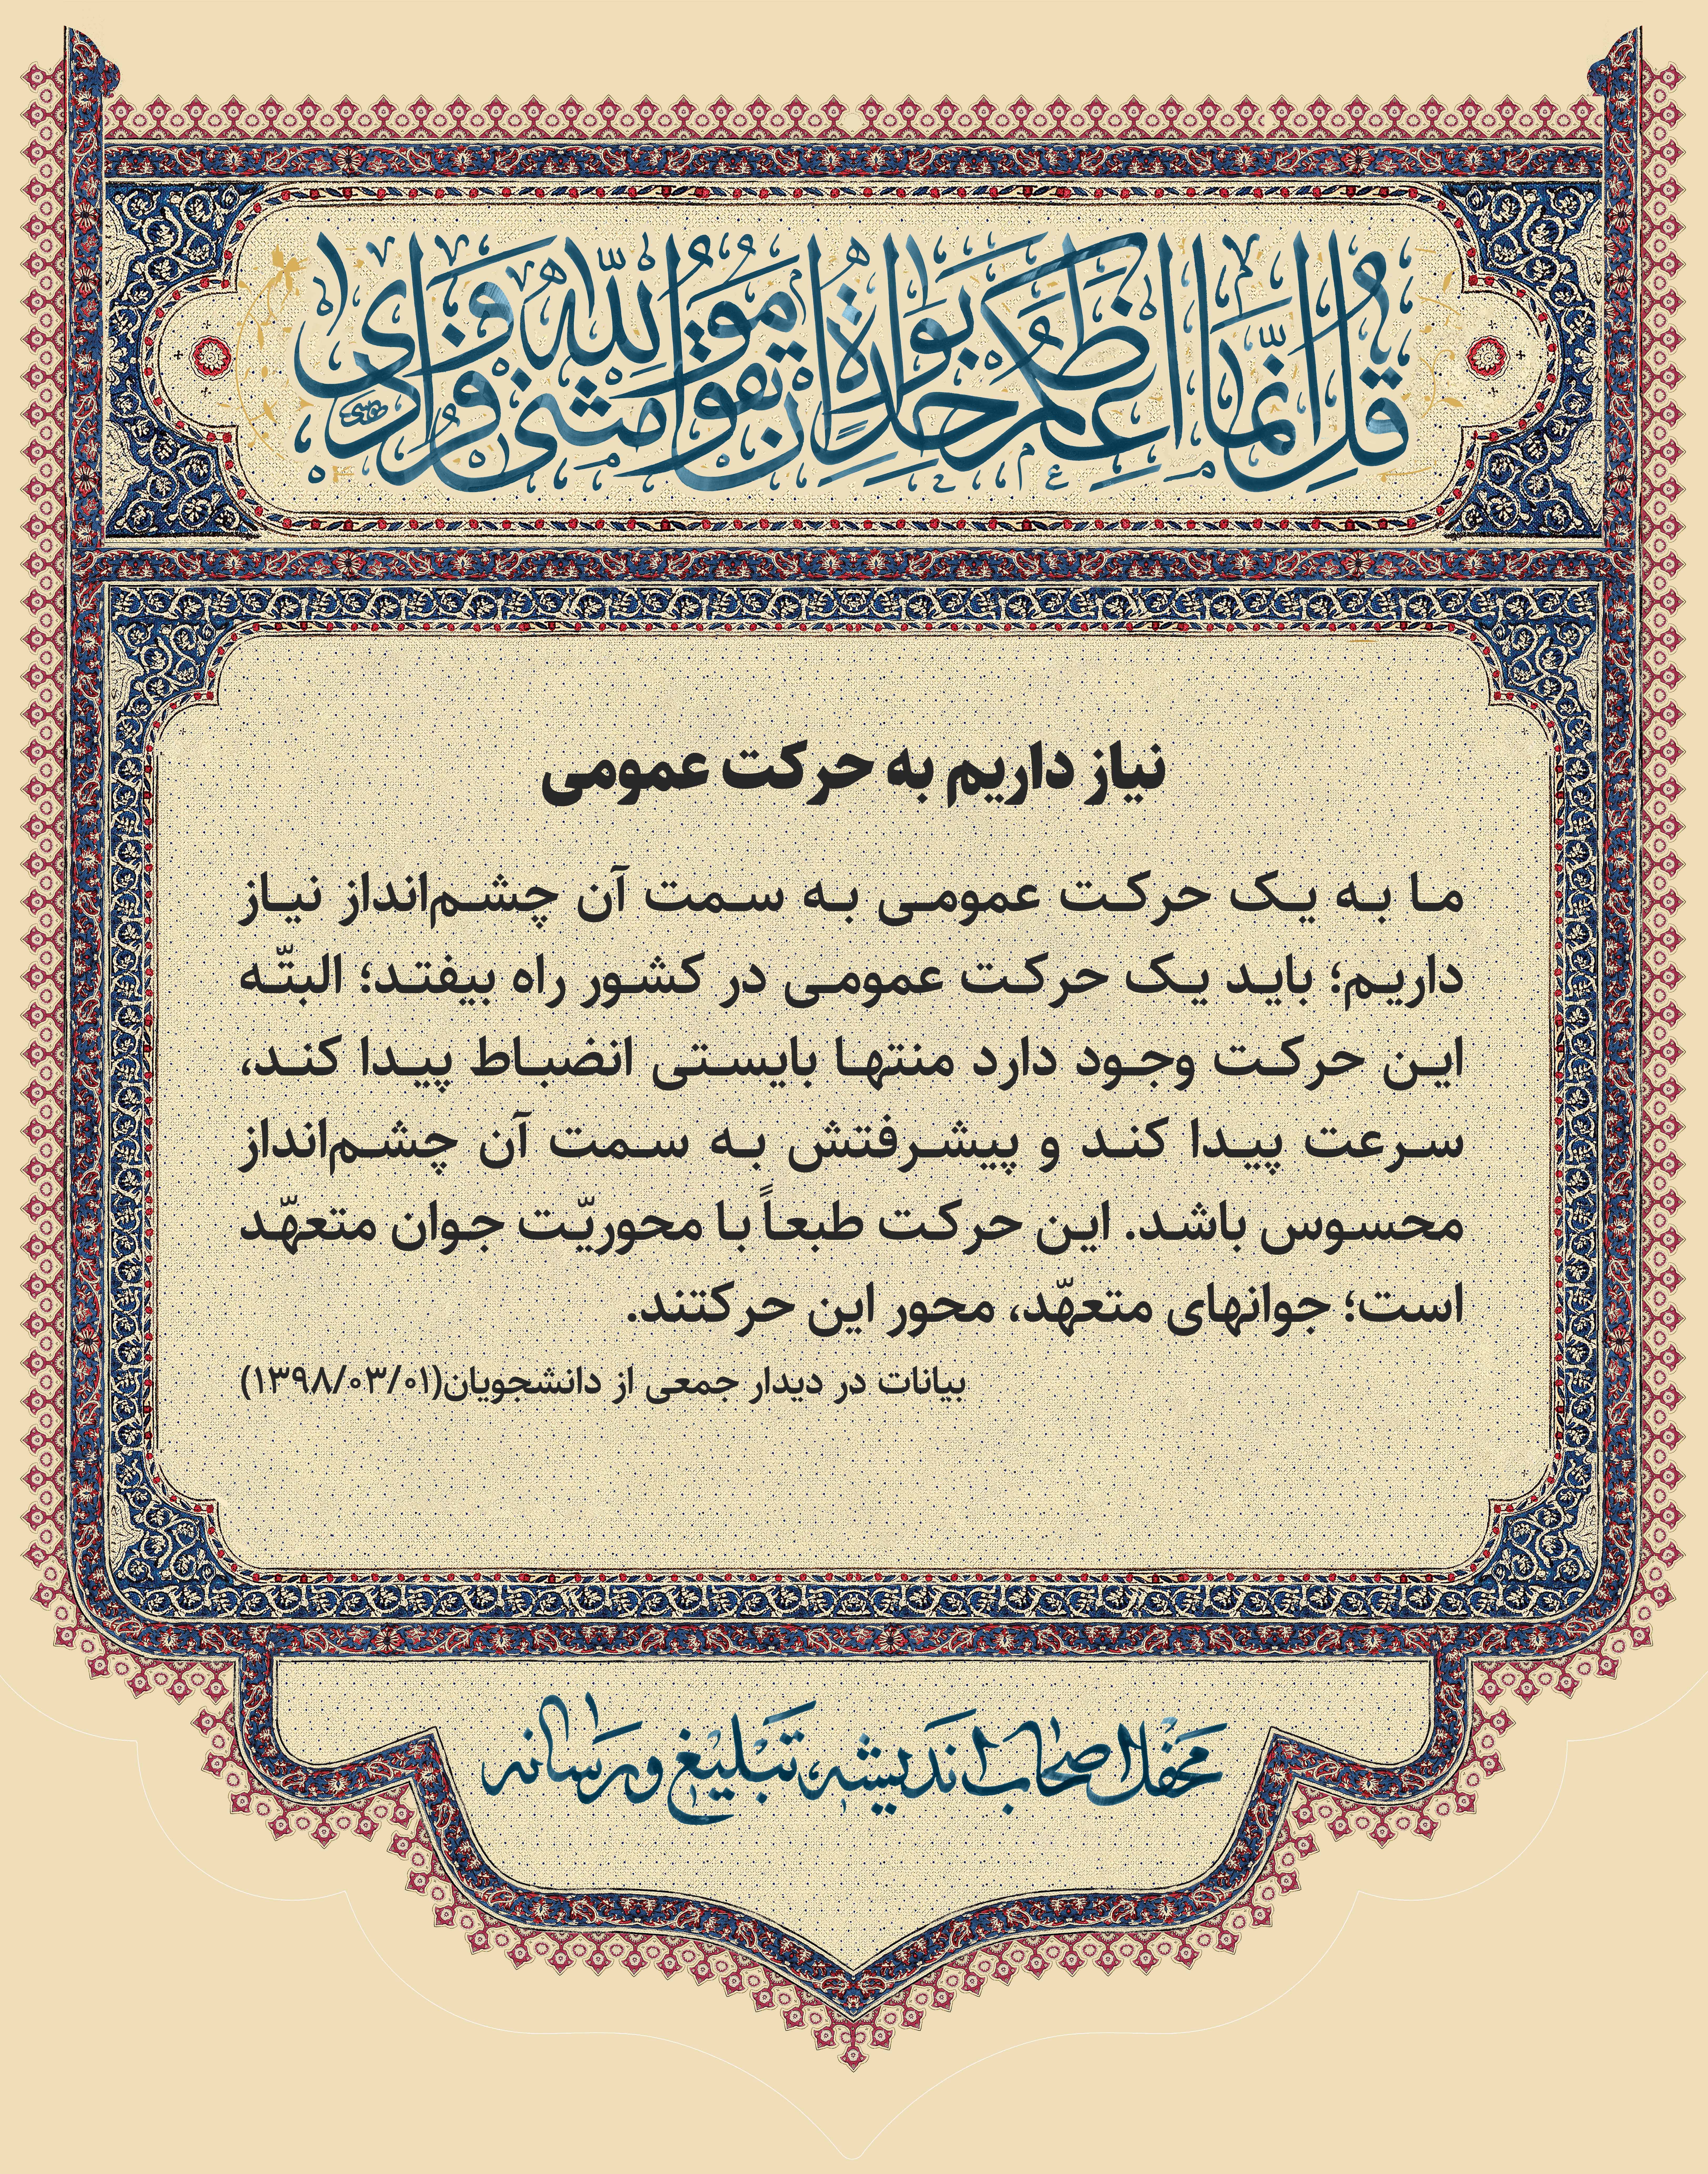 قُل إنّما أعظكم بواحدةٍ أن تقوموا لله مثنى و فرادى
نیاز داریم به حرکت عمومی
ما به یک حرکت عمومی به سمت آن چشم‌انداز نیاز
داریم؛ باید یک حرکت عمومی در کشور راه بیفتد؛ البتّه
این حرکت وجود دارد منتها بایستی انضباط پیدا کند،
سرعت پیدا کند و پیشرفتش به سمت آن چشم‌انداز
محسوس باشد. این حرکت طبعاً با محوریّت جوان متعهّد
است؛ جوانهای متعهّد، محور این حرکتند.
بیانات در دیدار جمعی از دانشجویان(۱۳۹۸/۰۳/۰۱)
محفل اصحاب اندیشه، تبلیغ و رسانه